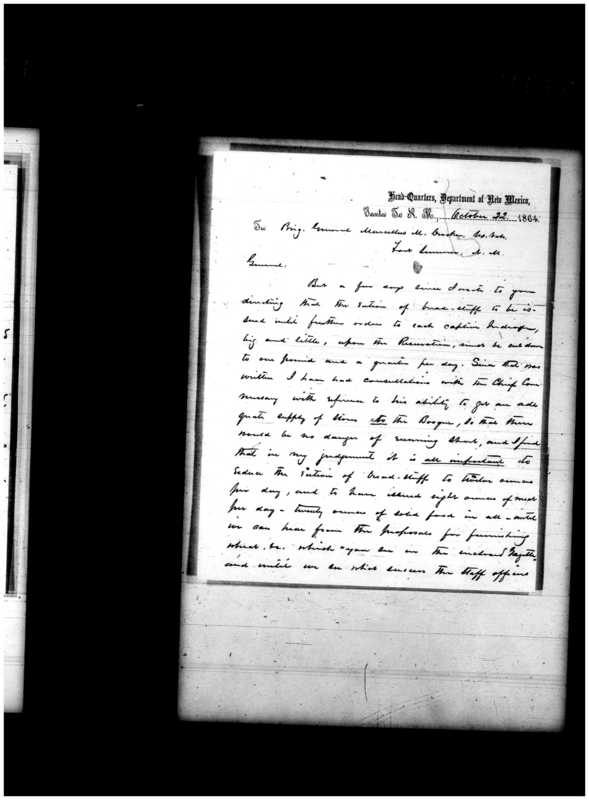 Head-Quarters, Department of New Mexico,
Santa Fe N. M., October 22 1864.
To Brig. General Marcellus M. Crocker U.S. Vols.
Fort Sumner, N. M.
General.
But a few days since I wrote to you
directing that the ration of bread-stuff to be is-
sued until further orders to each captive Indian,
big and little, upon the Reservation, should be cut down
to one pound and a quarter per day. Since that was
written I have had consultations with the Chief Com
missary with reference to his ability to get an ade
quate supply of stores to the Bosque, so that there
would be no danger of running short, and I find
that in my judgement it is all important to
reduce the ration of bread-stuff to twelve ounces
per day, and to have issued eight ounces of meat
per day - twenty ounces of solid food in all - until
we can hear from the proposals for furnishing
wheat, &c. which you see in the enclosed Gazette,
and until we see what success the staff officers